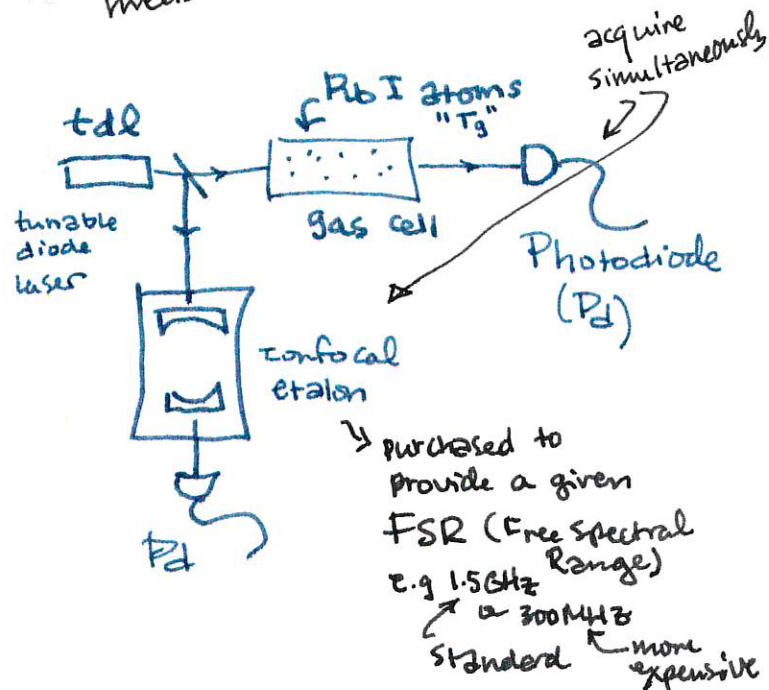 acquire
simultaneously
Rb I atoms
"Tg"
tdl
tunable
diode
laser
gas cell
Photodiode
(Pd)
confocal
etalon
Pd
purchased to
provide a given
FSR (Free Spectral
Range)
e.g 1.5GHz
or 300MHz
standard
more
expensive